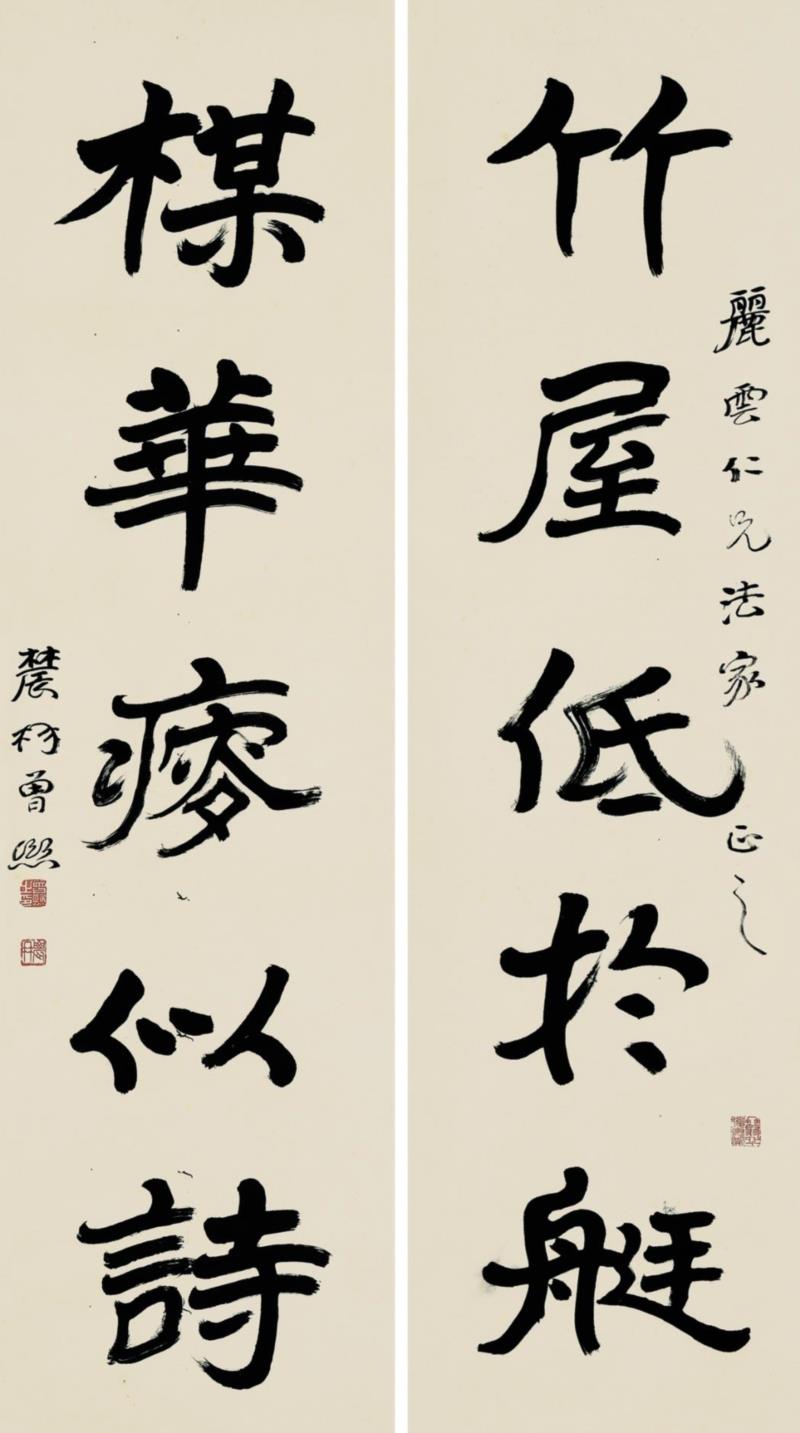 麗雲仁兄法家正之
竹屋低於艇
楳華瘦似詩
農髯曾熙